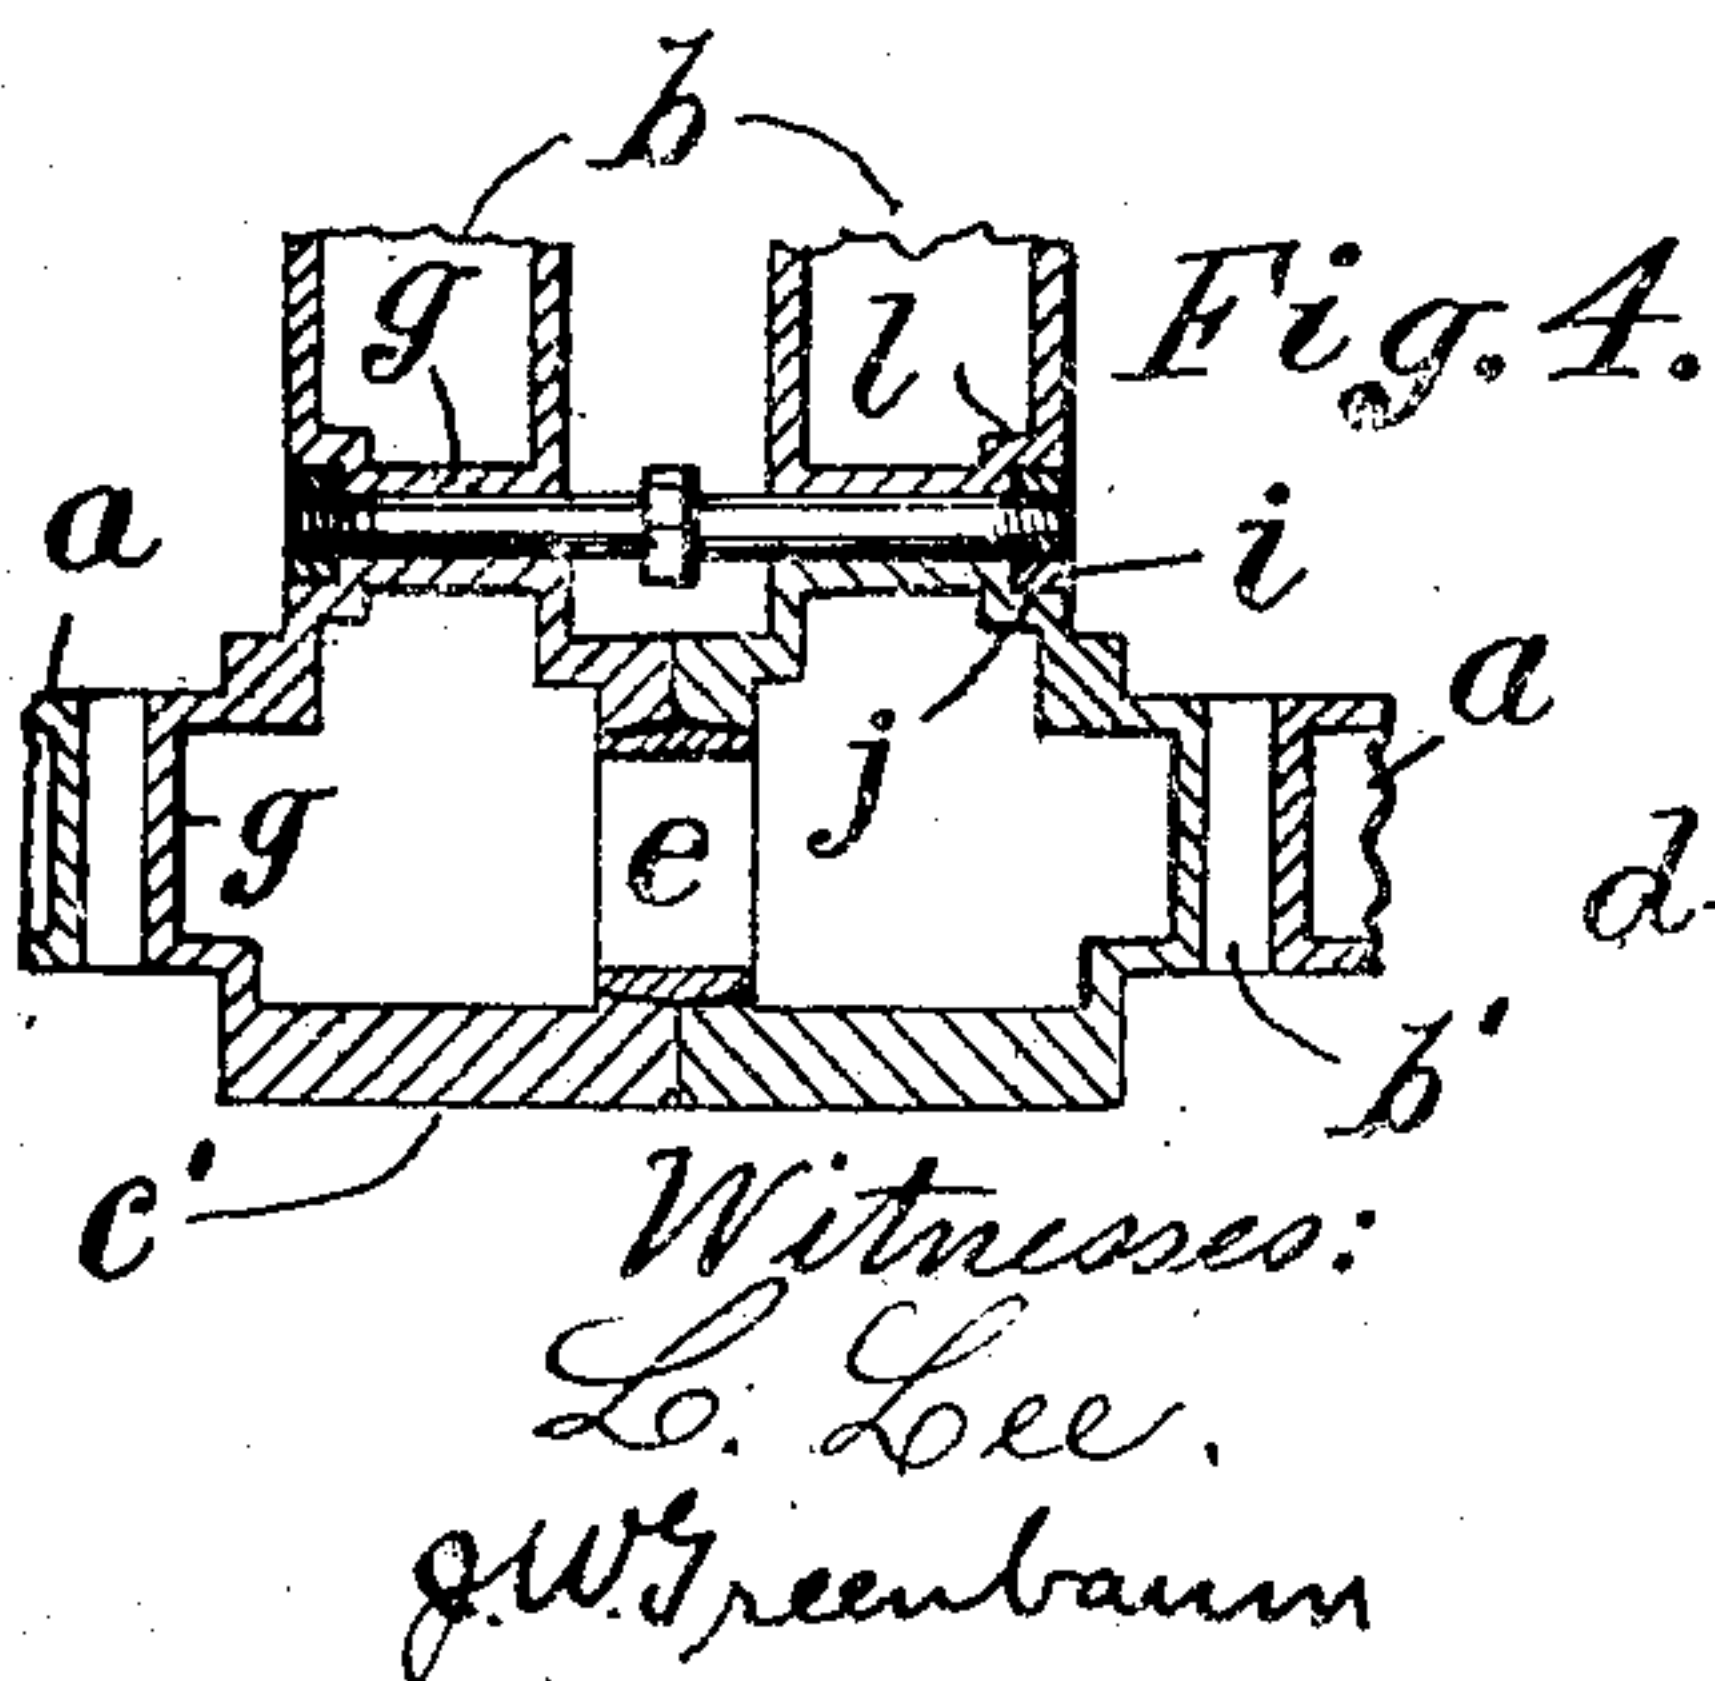 b
Fig. 4.
g
l
a
i
a
j
g
e
d
b'
c'
Witnesses:
L. Lee.
J.W. Greenbaum